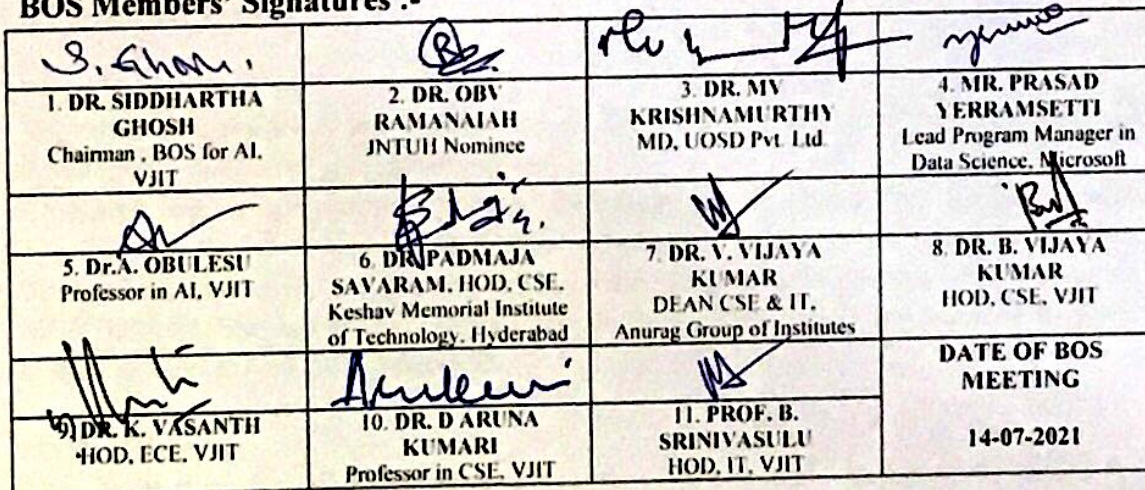 BOS Members' Signatures :-
S. Ghosh.
1. DR. SIDDHARTHA
GHOSH
Chairman , BOS for AI,
VJIT
2. DR. OBV
RAMANAIAH
JNTUH Nominee
3. DR. MV
KRISHNAMURTHY
MD, UOSD Pvt. Ltd
4. MR. PRASAD
YERRAMSETTI
Lead Program Manager in
Data Science, Microsoft
5. Dr.A. OBULESU
Professor in AI, VJIT
6. DR PADMAJA
SAVARAM, HOD, CSE,
Keshav Memorial Institute
of Technology, Hyderabad
7. DR. V. VIJAYA
KUMAR
DEAN CSE & IT,
Anurag Group of Institutes
8. DR. B. VIJAYA
KUMAR
HOD, CSE, VJIT
9. DR. K. VASANTH
HOD, ECE, VJIT
10. DR. D ARUNA
KUMARI
Professor in CSE, VJIT
11. PROF. B.
SRINIVASULU
HOD, IT, VJIT
DATE OF BOS
MEETING
14-07-2021